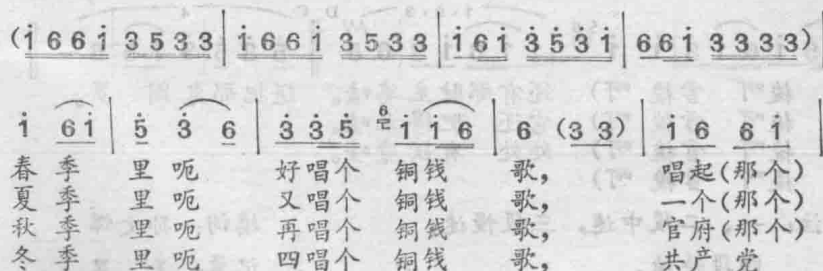 (i 6 6 i 3 5 3 3 | i 6 6 i 3 5 3 3 | i 6 i 3 5 3 i | 6 6 i 3 3 3 3)
i 6 i | 5 3 6 | 3 3 5 6 i i 6 | 6 (3 3) | i 6 6 i |
春 季 里 呃 好唱个 铜钱 歌， 唱起(那个)
夏 季 里 呃 又唱个 铜钱 歌， 一个(那个)
秋 季 里 呃 再唱个 铜钱 歌， 官府(那个)
冬 季 里 呃 四唱个 铜钱 歌， 共产 党